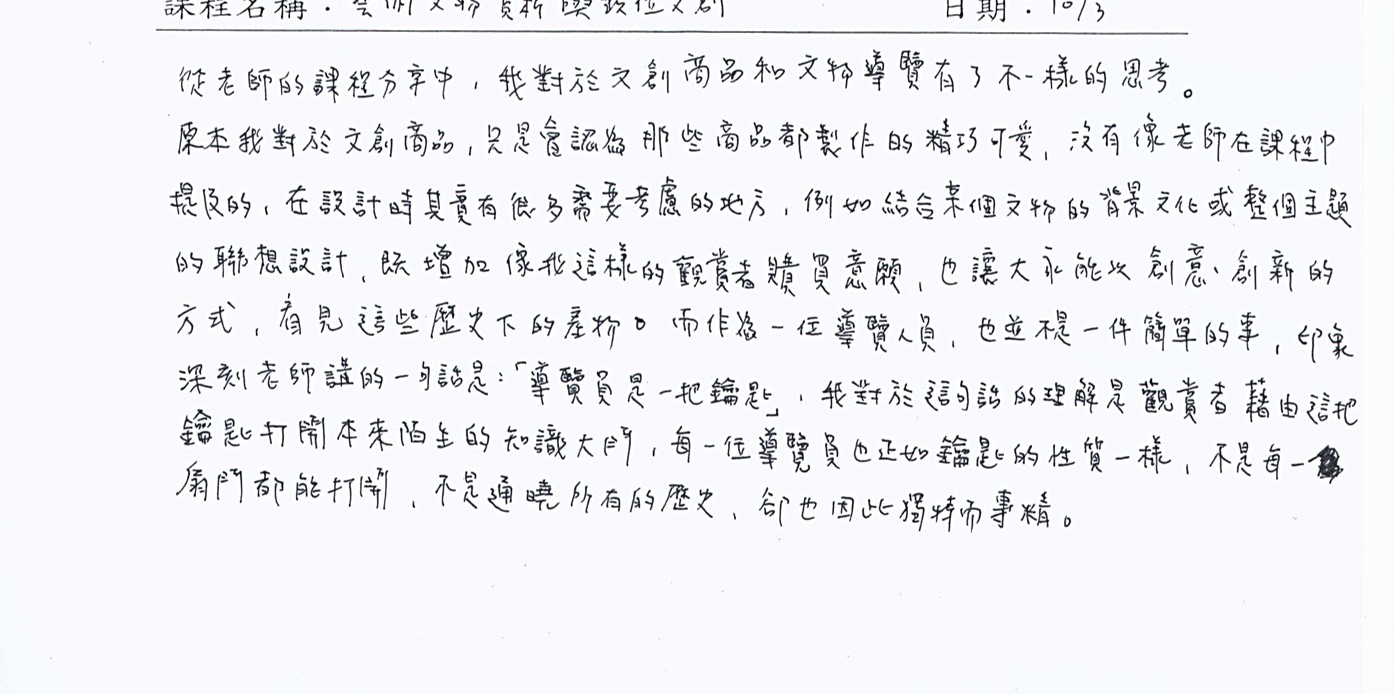 課程名稱：藝術文物賞析與數位文創　日期：10/3
從老師的課程分享中，我對於文創商品和文物導覽有了不一樣的思考。
原本我對於文創商品，只是會認為那些商品都製作的精巧可愛，沒有像老師在課程中
提及的，在設計時其實有很多需要考慮的地方，例如結合某個文物的背景文化或整個主題
的聯想設計，既增加像我這樣的觀賞者購買意願，也讓大家能以創意、創新的
方式，看見這些歷史下的產物。而作為一位導覽人員，也並不是一件簡單的事，印象
深刻老師講的一句話是：「導覽員是一把鑰匙」，我對於這句話的理解是觀賞者藉由這把
鑰匙打開本來陌生的知識大門，每一位導覽員也正如鑰匙的性質一樣，不是每一
扇門都能打開，不是通曉所有的歷史，卻也因此獨特而專精。